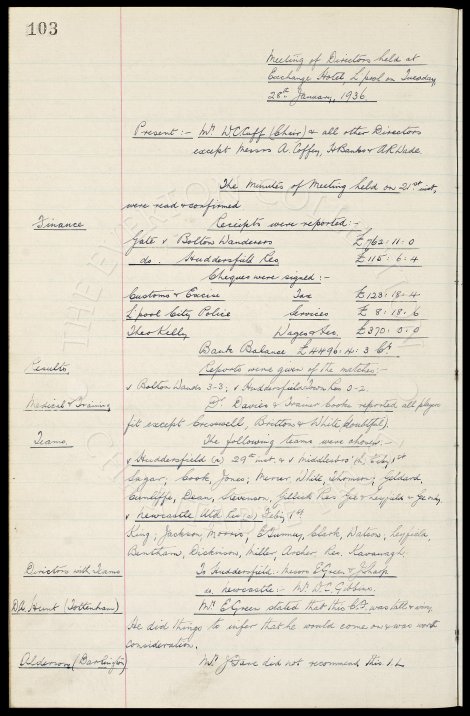 103
Meeting of Directors held at
Exchange Hotel, L'pool on Tuesday,
28th January, 1936.
Present :- Mr. W.C. Cuff (Chair) & all other Directors
except Messrs A. Coffey, H. Banks & A.R. Wade.
The Minutes of Meeting held on 21st inst,
were read & confirmed
Finance
Receipts were reported :-
Gate v Bolton Wanderers £762:11:0
do. v Huddersfield Res £115:6:4
Cheques were signed :-
Customs & Excise Tax £123:18:4
L'pool City Police Services £8:18:6
Theo Kelly Wages &c. £370:0:0
Bank Balance £4496:4:3 Cr.
Results
Reports were given of the matches :-
v Bolton Wands 3-3; v Huddersfield Town Res 3-2.
Medical & Training
Dr. Davies & Trainer Cooke reported all players
fit except Cresswell, Britton & White (doubtful).
Teams.
The following teams were chosen :-
v Huddersfield (a) 29th inst. & v Middlesbro' (h) Feby. 1st
Sagar; Cook, Jones; Mercer, White, Thomson; Geldard,
Cunliffe, Dean, Stevenson, Gillick Res Gee & Leyfield
v Newcastle Utd. Res (a) Feby. 1st
King; Jackson, Morris; Clark, Watson, Leyfield,
Bentham, Dickinson, Miller, Archer Res. Kavanagh.
Directors with Teams
To Huddersfield. Messrs E. Green & J. Sharp
Newcastle. Mr. Gibbins.
Hunt (Tottenham)
Mr. E. Green stated that this C.F. was tall &
He did things to infer that he would come on & was worth
consideration.
Alderson (Darlington)
Mr. did not recommend this I.L.